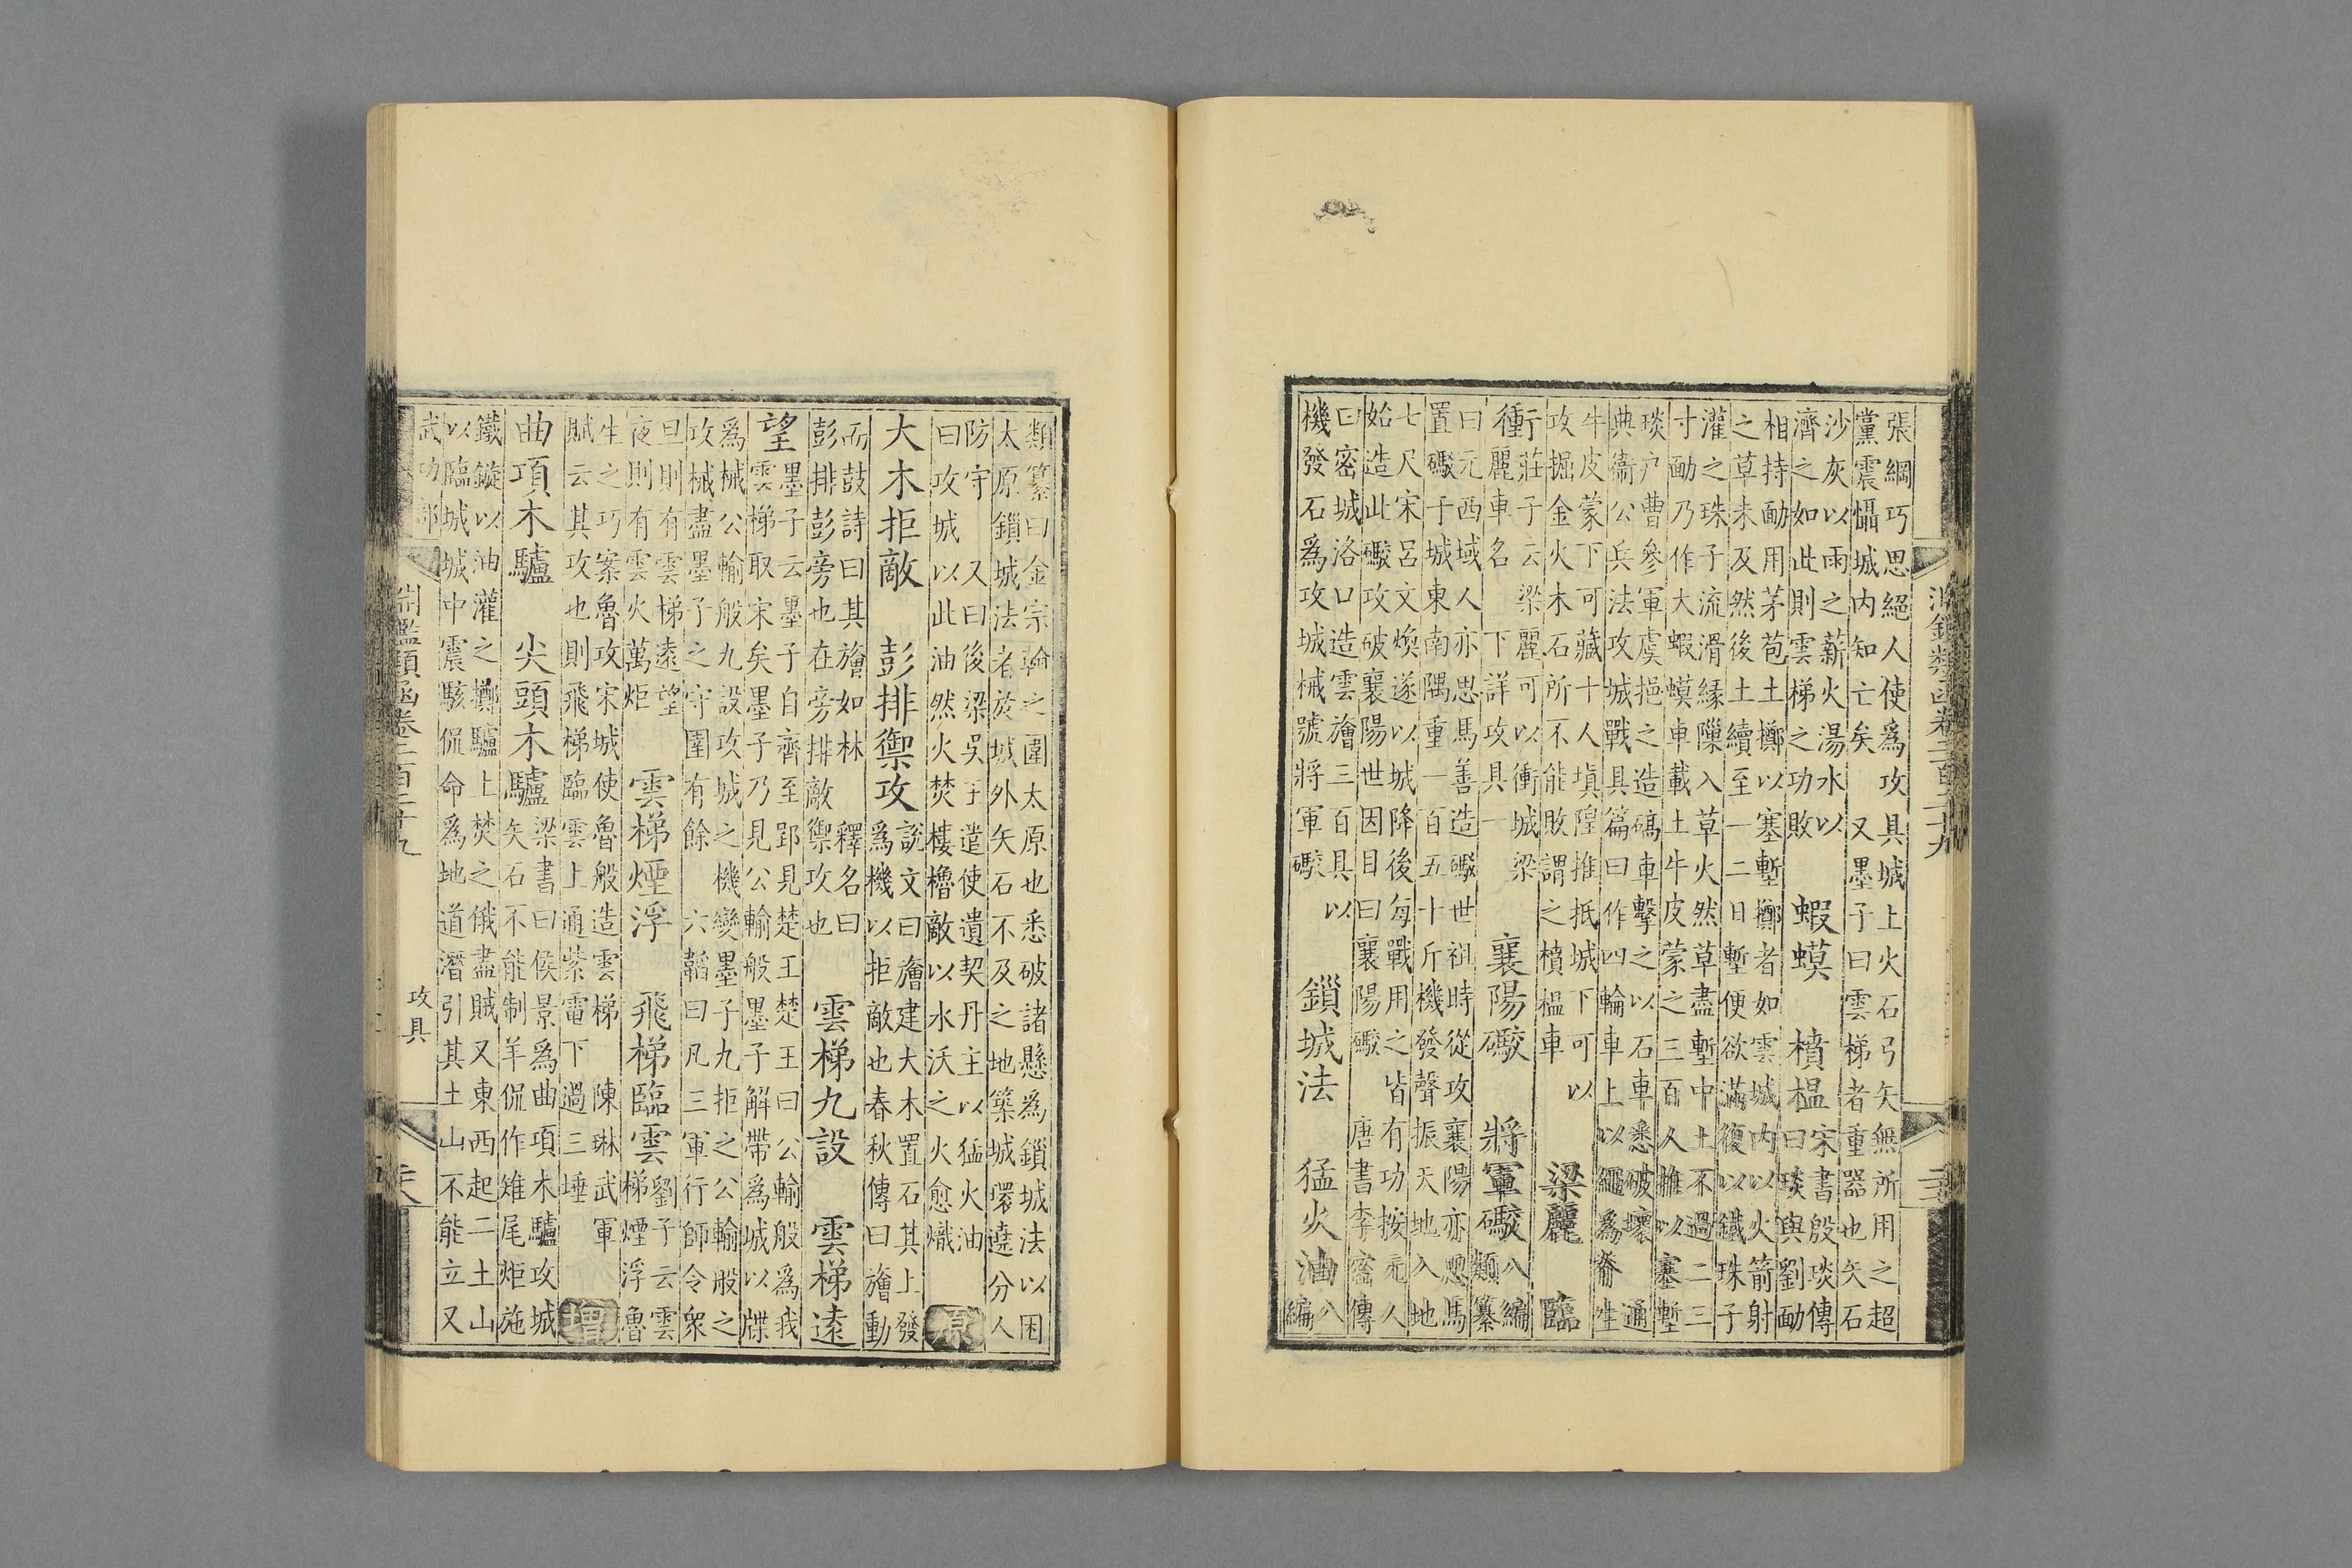 張綱巧思絕人使爲攻具城上火石弓矢無所用之超
黨震懾城内知亡矣　又墨子曰雲梯者重器也矢石
沙灰以雨之薪火湯水以
濟之如此則雲梯之功敗
蝦蟆　樻榲
宋書殷琰傳
曰琰與劉勔
相持勔用茅苞土擲以塞塹擲者如雲城内以火箭射
之草未及然後土續至一二日塹便欲滿復以鐵珠子
灌之珠子流滑緣隟入草火然草盡塹中土不過二三
寸勔乃作大蝦蟆車載土牛皮蒙之三百人推以塞塹
琰户曹參軍虞挹之造車擊之以石車悉破壞　通
典衞公兵法攻城戰具篇曰作四輪車上以繩爲脊生
牛皮蒙下可藏十人塡隍推抵城下可以
攻掘金火木石所不能敗謂之樻榲車
梁麗　臨
衝
莊子云梁麗可以衝城梁
麗車名　下詳攻具一
襄陽礮　將軍礮
八編
類纂
曰元西域人亦思馬善造礮世祖時從攻襄陽亦思馬
置礮于城東南隅重一百五十斤機發聲振天地入地
七尺宋呂文煥遂以城降後每戰用之皆有功按元人
始造此礮攻破襄陽世因目曰襄陽礮　唐書李密傳
曰密城洛口造雲旝三百具以
機發石爲攻城械號將軍礮
鎖城法　猛火油
八
編
類纂曰金宗翰之圍太原也悉破諸縣爲鎖城法以困
太原鎖城法者於城外矢石不及之地築城環遶分人
防守　又曰後梁吳王遣使遺契丹主以猛火油
曰攻城以此油然火焚樓櫓敵以水沃之火愈熾
原
大木拒敵　彭排禦攻
說文曰旝建大木置石其上發
爲機以拒敵也春秋傳曰旝動
而鼓詩曰其旝如林　釋名曰
彭排彭旁也在旁排敵禦攻也
雲梯九設　雲梯遠
望
墨子云墨子自齊至郢見楚王楚王曰公輸般爲我
雲梯取宋矣墨子乃見公輸般墨子解帶爲城以牒
爲械公輸般九設攻城之機變墨子九拒之公輸般之
攻械盡墨子之守圍有餘　六韜曰凡三軍行師令衆
旦則有雲梯遠望
夜則有雲火萬炬
雲梯煙浮　飛梯臨雲
劉子云雲
梯煙浮魯
生之巧案魯攻宋城使魯般造雲梯　陳琳武軍
賦云其攻也則飛梯臨雲上通紫電下過三埵
增
曲項木驢　尖頭木驢
梁書曰侯景爲曲項木驢攻城
矢石不能制羊侃作雉尾炬施
鐵鏃以油灌之擲驢上焚之俄盡賊又東西起二土山
以臨城城中震駭侃命爲地道潛引其土山不能立又
武功部
淵鑑類函卷二百二十九
攻具